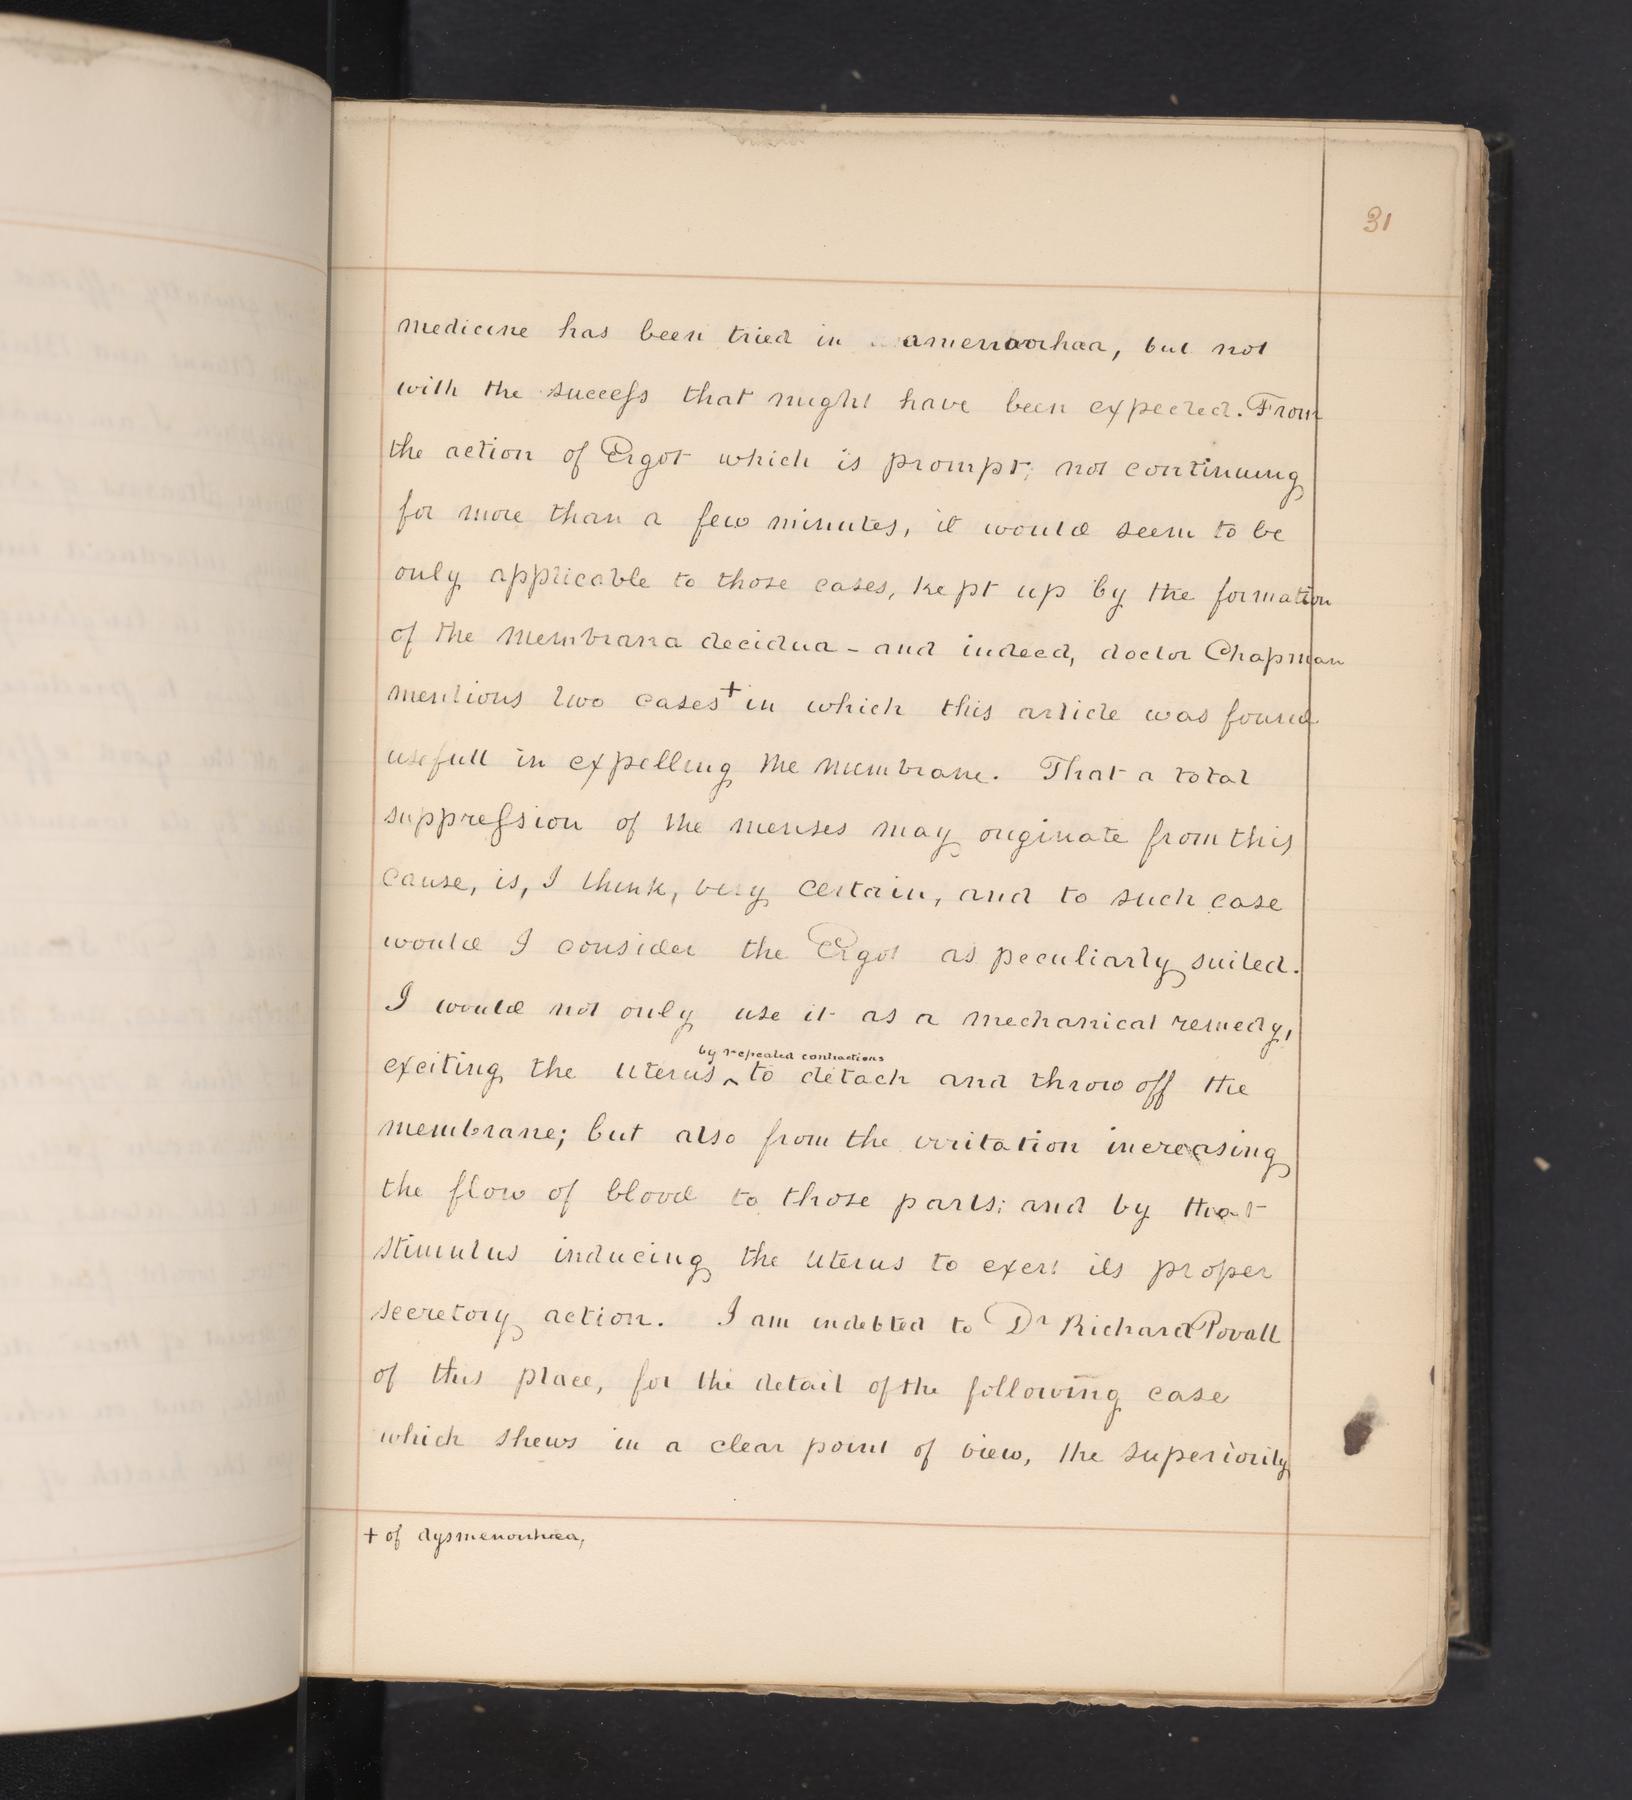 31
medicine has been tried in amenorrhœa, but not
with the success that might have been expected. From
the action of Ergot which is prompt; not continuing
for more than a few minutes, it would seem to be
only applicable to those cases, kept up by the formation
of the membrana decidua - and indeed, doctor Chapman
mentions two cases + in which this article was found
usefull in expelling the membrane. That a total
suppression of the menses may originate from this
cause, is, I think, very certain, and to such case
would I consider the Ergot as peculiarly suited.
I would not only use it as a mechanical remedy,
by repeated contractions
exciting the uterus ^ to detach and throw off the
membrane; but also from the irritation increasing
the flow of blood to those parts; and by that
stimulus inducing the uterus to exert its proper
secretory action. I am indebted to Dr Richard Povall
of this place, for the detail of the following case
which shews in a clear point of view, the superiority
+ of dysmenorrhœa,